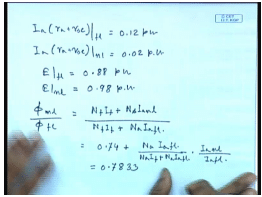 Ia (ra+rse)|fl = 0.12 pu
Ia (ra+rse)|nl = 0.02 p.u
E|fl = 0.88 pu
E|nl = 0.98 p.u.
ϕnl / ϕfl = (Nf If + Ns Ianl) / (Nf If + Ns Iafl.)
= 0.74 + (Ns Iafl. / Nf If + Ns Iafl.) · (Ianl / Iafl.)
= 0.7833